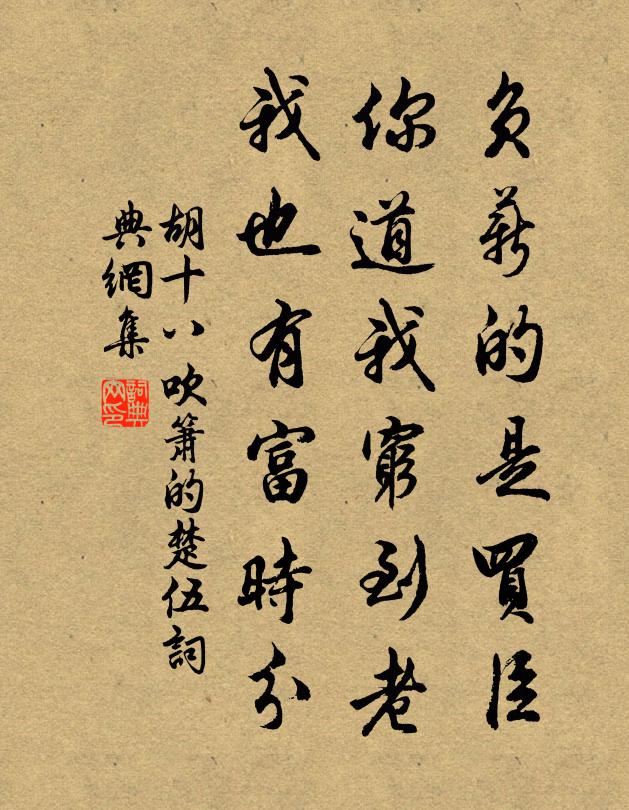 負薪的是買臣
你道我窮到老
我也有富時分
胡十八 吹簫的楚伍詞
典網集
詞典
网印